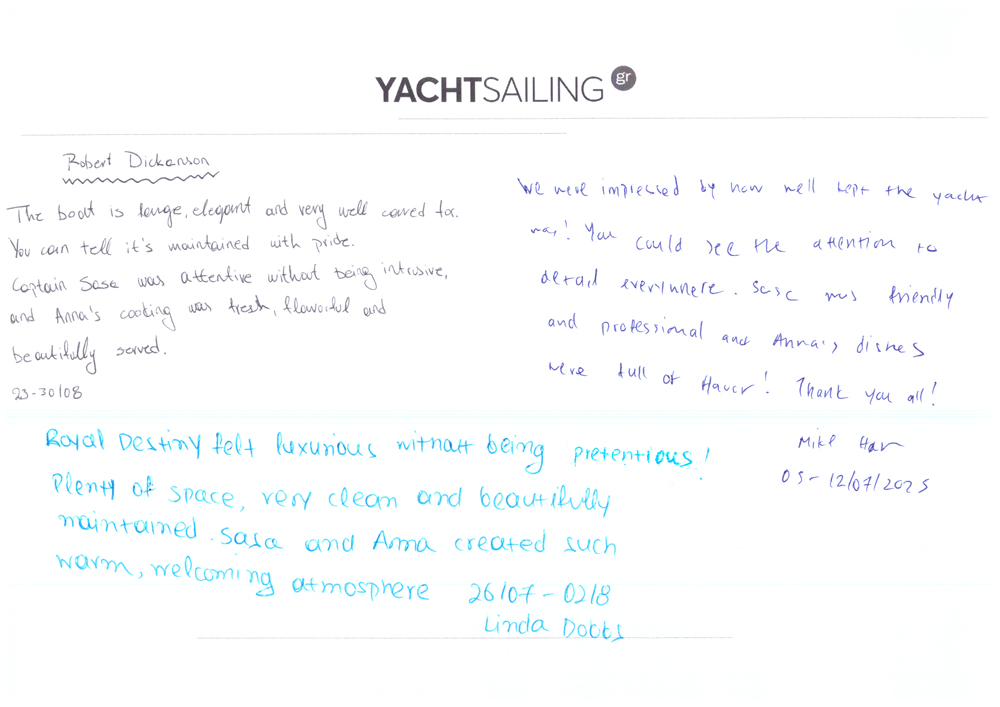 YACHTSAILING gr
Robert Dickenson
The boat is large, elegant and very well cared for.
You can tell it's maintained with pride.
Captain Sasa was attentive without being intrusive,
and Anna's cooking was fresh, flavorful and
beautifully served.
23-30/08
We were impressed by how well kept the yacht
was! You could see the attention to
detail everywhere. Sasa was friendly
and professional and Anna's dishes
were full of flavor! Thank you all!
Mike
05-12/07/2025
Royal Destiny felt luxurious without being pretentious!
Plenty of space, very clean and beautifully
maintained. Sasa and Anna created such
warm, welcoming atmosphere
26/07 - 02/8
Linda Dobbs